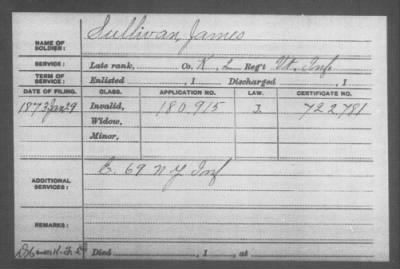 NAME OF SOLDIER: Sullivan, James
SERVICE: Late rank, Co. K, Reg't Vt. Inf
TERM OF SERVICE: Enlisted , 1 Discharged , 1
DATE OF FILING. CLASS. APPLICATION NO. LAW. CERTIFICATE NO.
1873 Jan 29 Invalid, 180,915 722,781
Widow,
Minor,
ADDITIONAL SERVICES: E. 69 N Y Inf
REMARKS:
Died , 1 , at